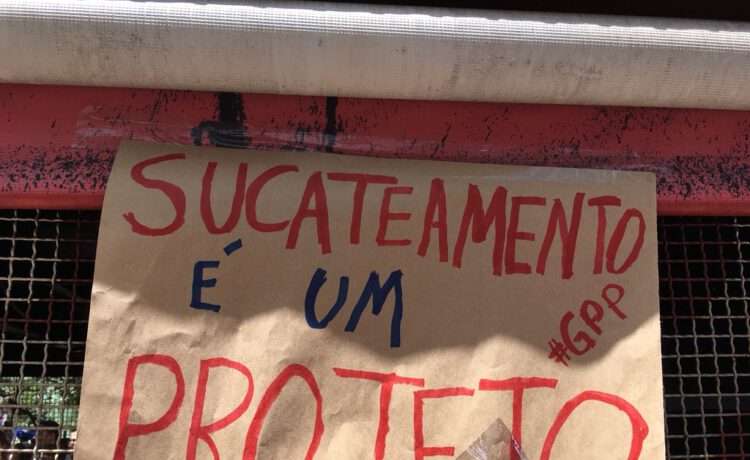 SUCATEAMENTO
É UM
#GPP
PROJETO